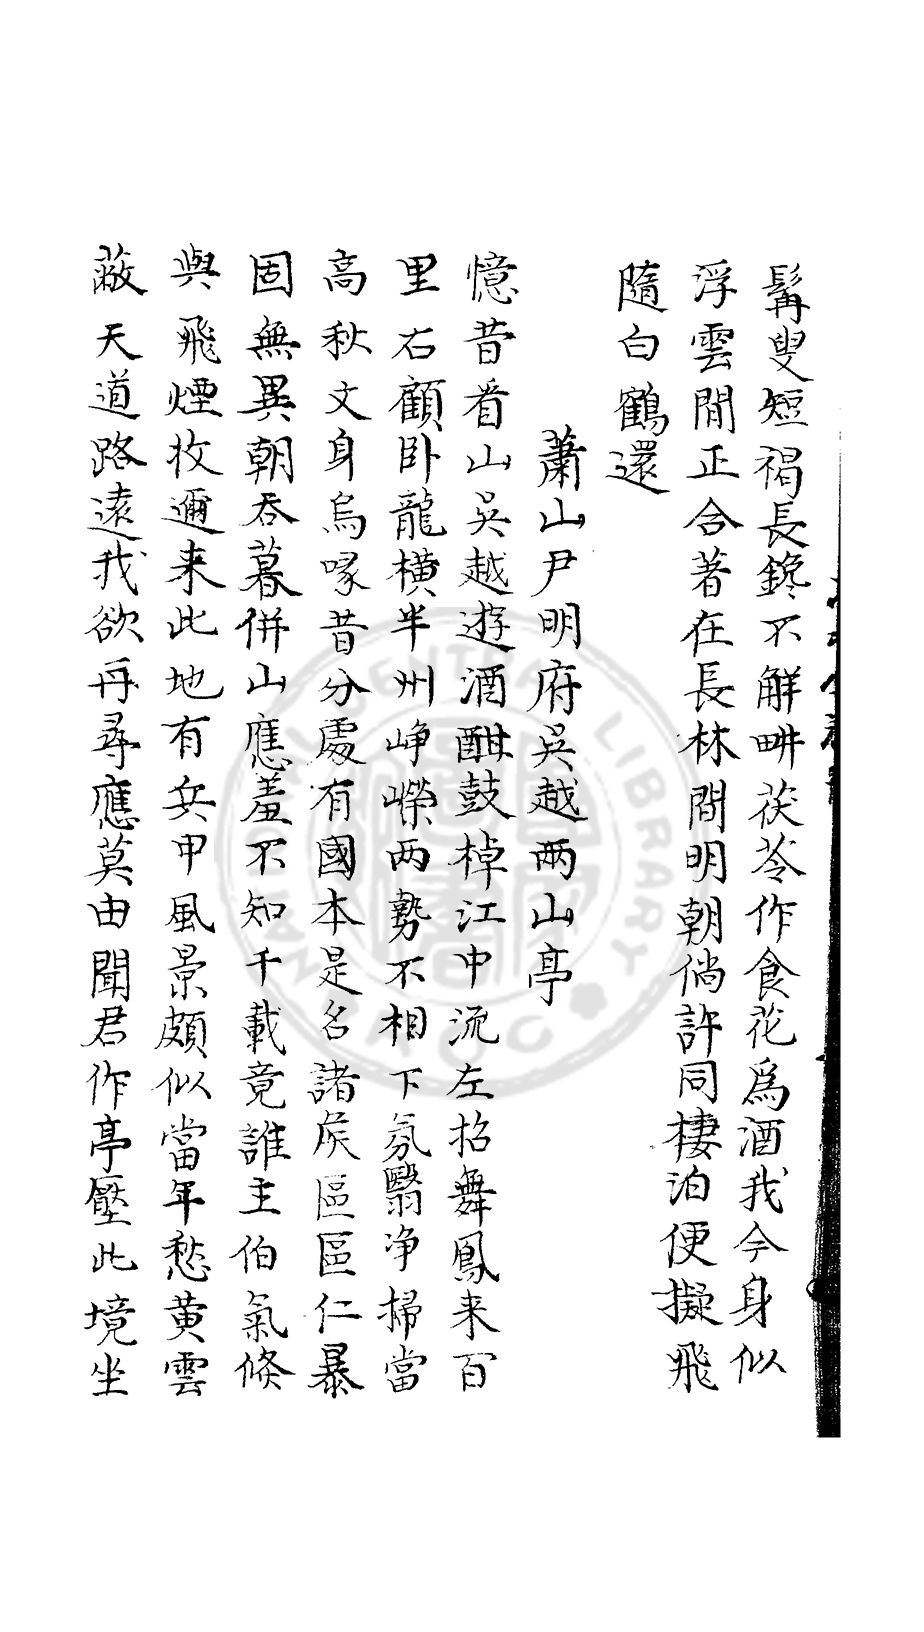 髯叟短褐長鑱不解畊茯苓作食花為酒我今身似
浮雲閒正合著在長林間明朝倘許同棲泊便擬飛
隨白鶴還
蕭山尹明府吳越兩山亭
憶昔看山吳越遊酒酣鼓棹江中流左招舞鳳来百
里右顧卧龍橫半州崢嶸兩勢不相下氛翳净掃當
高秋文身烏喙昔分處有國本是名諸侯區區仁暴
固無異朝吞暮併山應羞不知千載竟誰主伯氣倏
與飛煙收邇来此地有兵甲風景頗似當年愁黄雲
蔽天道路遠我欲再尋應莫由聞君作亭壓此境坐
NATIONAL CENTRAL LIBRARY